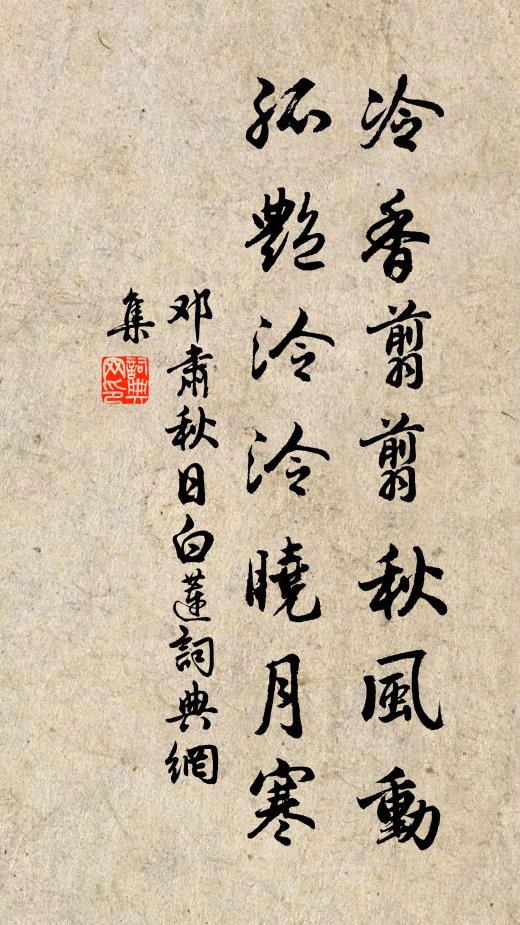 冷香翦翦秋風動
孤艷泠泠曉月寒
邓肅秋日白蓮詞典網
集
詞典
网印